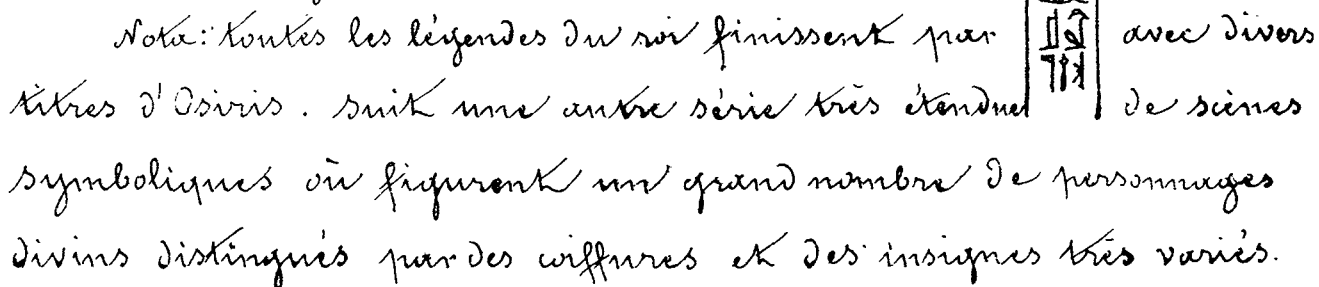 Nota: toutes les légendes du roi finissent par avec divers
titres d'Osiris. Suit une autre série très étendue de scènes
symboliques où figurent un grand nombre de personnages
divins distingués par des coiffures et des insignes très variés.